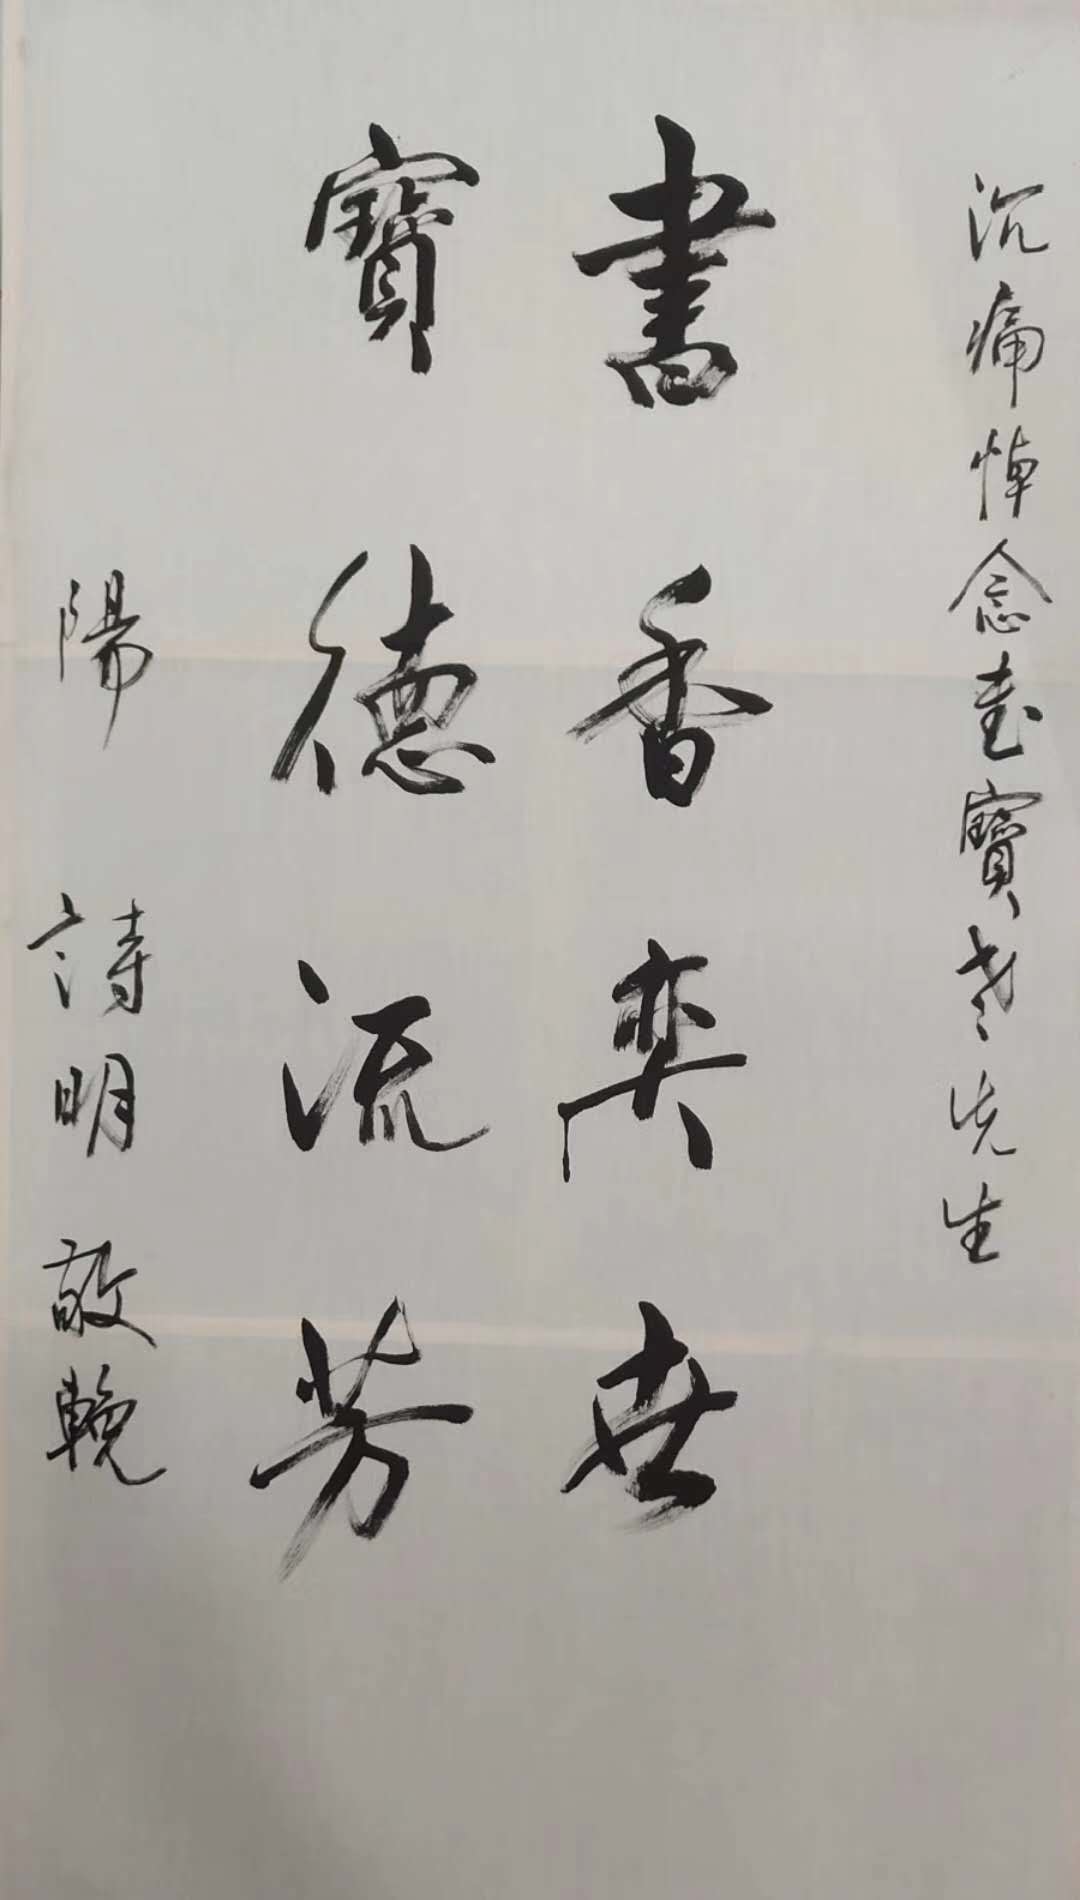 沉痛悼念寶老先生
書香奕世
寶德流芳
陽 詩明 敬輓